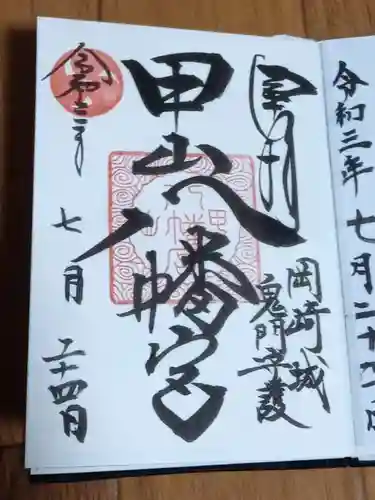 奉拝
岡崎城
鬼門守護
甲山八幡宮
令和三年
七月
二十四日
令和三年
七月二十